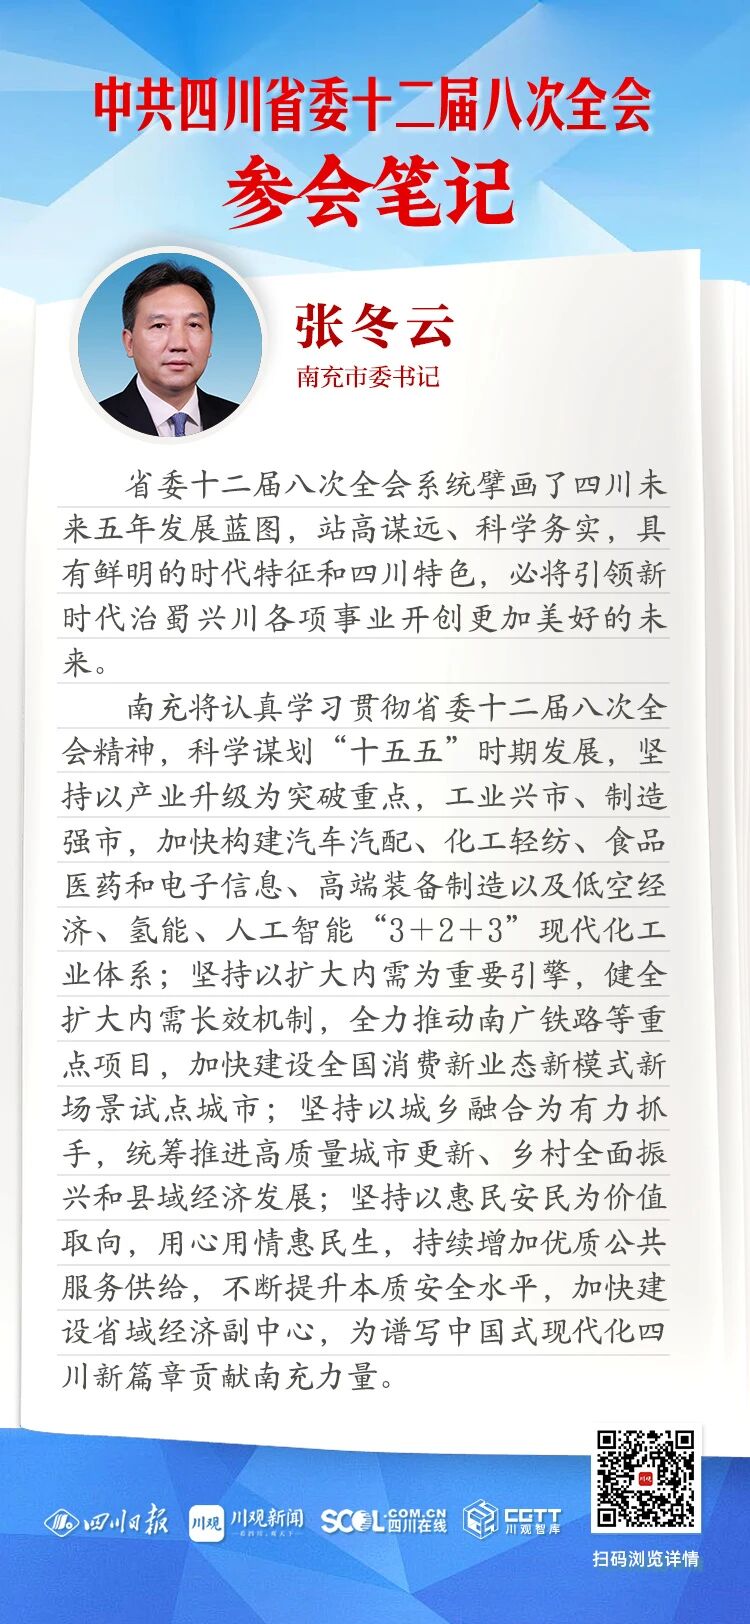 中共四川省委十二届八次全会
参会笔记
张冬云
南充市委书记
省委十二届八次全会系统擘画了四川未
来五年发展蓝图，站高谋远、科学务实，具
有鲜明的时代特征和四川特色，必将引领新
时代治蜀兴川各项事业开创更加美好的未
来。
南充将认真学习贯彻省委十二届八次全
会精神，科学谋划“十五五”时期发展，坚
持以产业升级为突破重点，工业兴市、制造
强市，加快构建汽车汽配、化工轻纺、食品
医药和电子信息、高端装备制造以及低空经
济、氢能、人工智能“3＋2＋3”现代化工
业体系；坚持以扩大内需为重要引擎，健全
扩大内需长效机制，全力推动南广铁路等重
点项目，加快建设全国消费新业态新模式新
场景试点城市；坚持以城乡融合为有力抓
手，统筹推进高质量城市更新、乡村全面振
兴和县域经济发展；坚持以惠民安民为价值
取向，用心用情惠民生，持续增加优质公共
服务供给，不断提升本质安全水平，加快建
设省域经济副中心，为谱写中国式现代化四
川新篇章贡献南充力量。
四川日报
川观 川观新闻
SCOL .COM.CN 四川在线
CGTT 川观智库
川观
扫码浏览详情